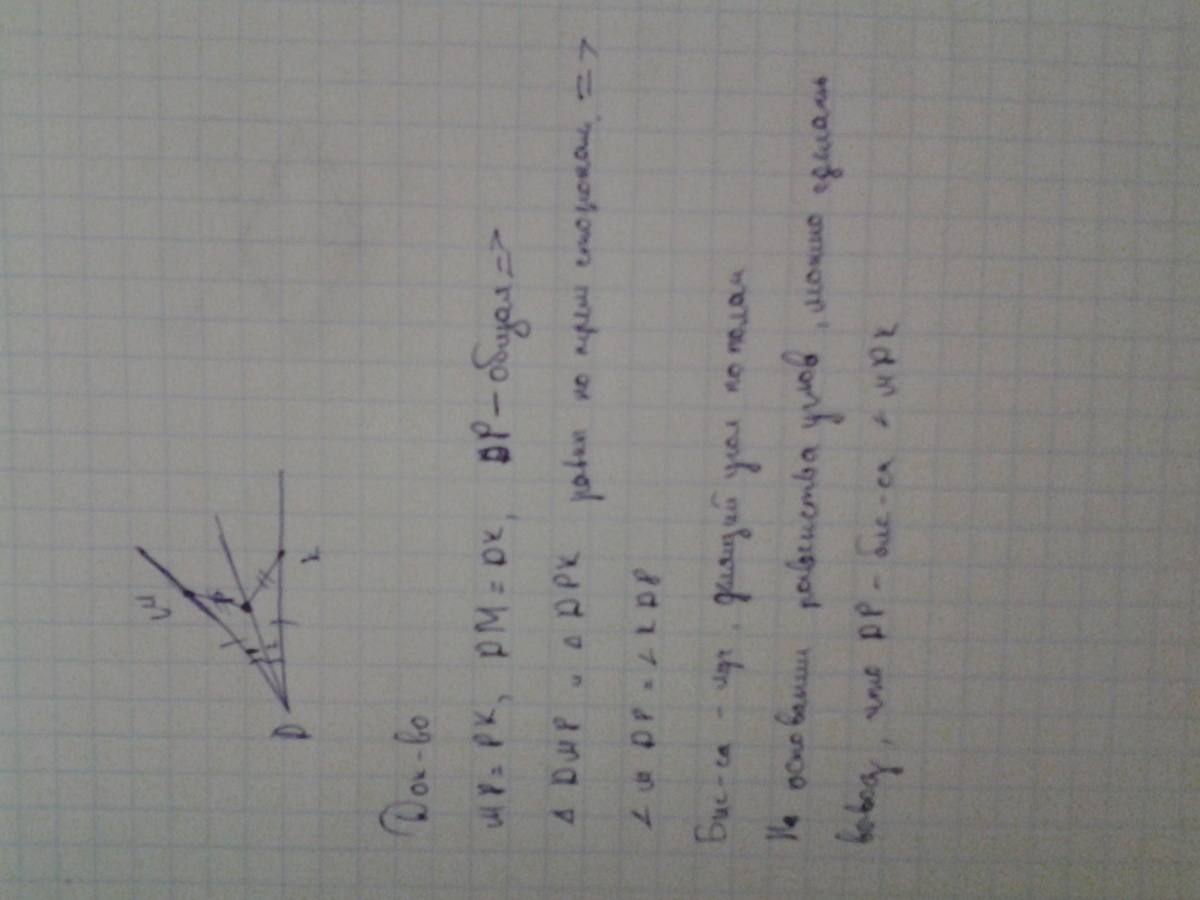 M
P
K
D
Док-во
MP = PK, DM = DK, DP – общая =>
Δ DMP и Δ DPK равны по трем сторонам =>
∠ MDP = ∠ KDP
Бис-са – луч, делящий угол по полам
На основании равенства углов, можно сделать
вывод, что DP – бис-са ∠ MDK